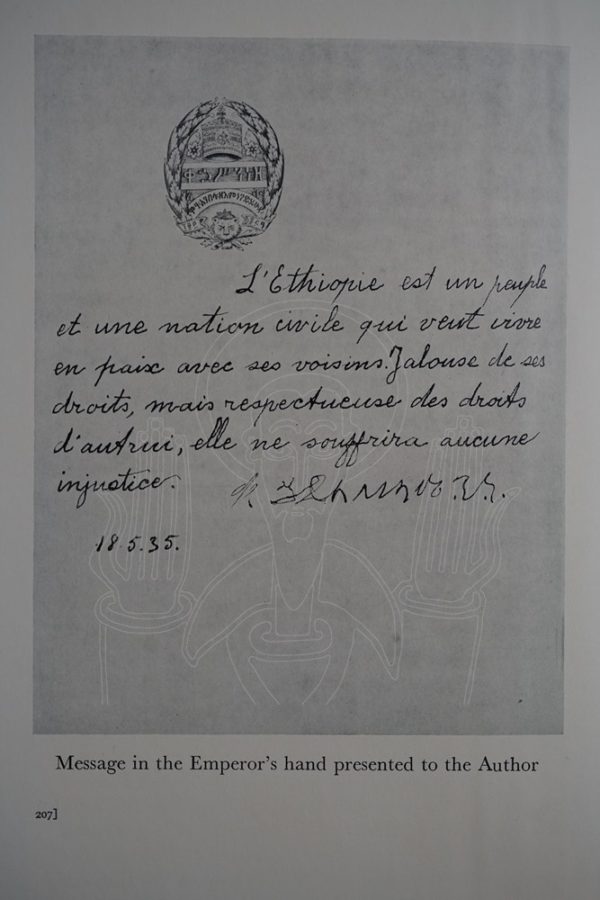 L'Ethiopie est un peuple
et une nation civile qui veut vivre
en paix avec ses voisins. Jalouse de ses
droits, mais respectueuse des droits
d'autrui, elle ne souffrira aucune
injustice.
18.5.35.
Message in the Emperor's hand presented to the Author
207]